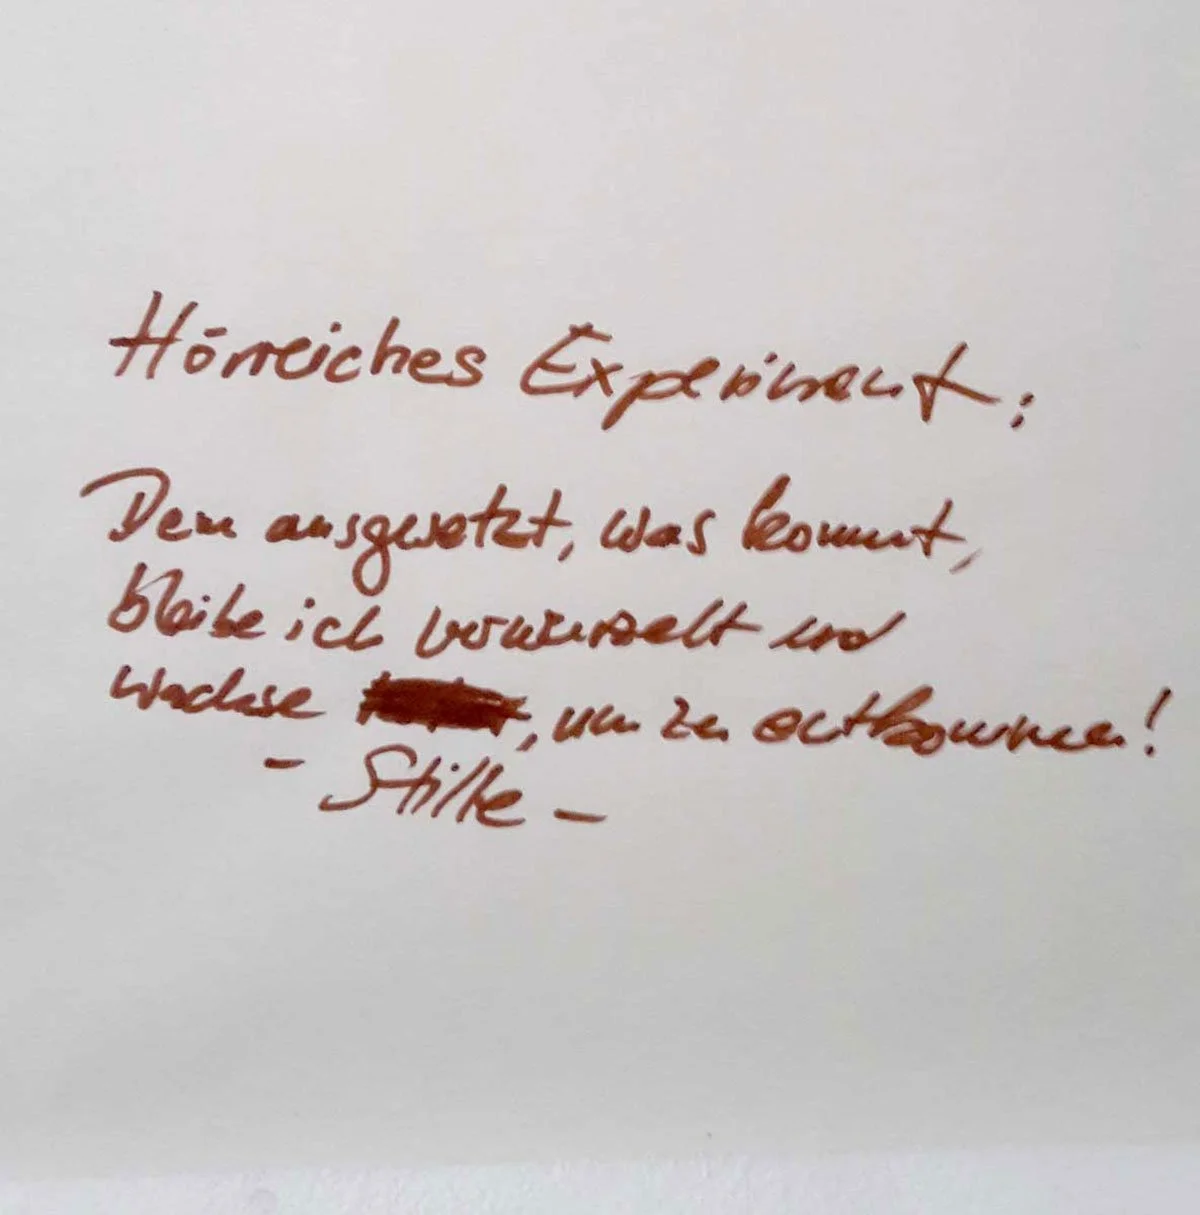 Hörreiches Experiment:
Dem ausgesetzt, was kommt,
bleibe ich verwurzelt und
wachse , um zu entkommen!
- Stille -